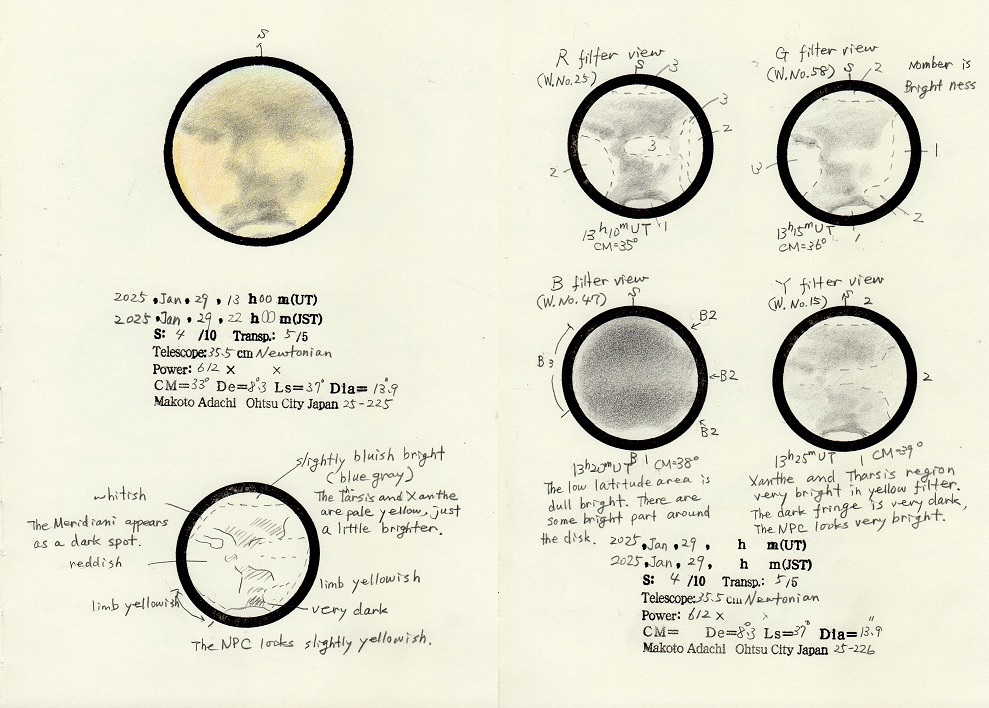 S
2025 . Jan . 29 , 13 h 00 m(UT)
2025 . Jan . 29 , 22 h 00 m(JST)
S: 4 /10 Transp.: 5/5
Telescope: 35.5 cm Newtonian
Power: 612 × ×
CM=33° De=8°.3 Ls=37° Dia=13".9
Makoto Adachi Ohtsu City Japan 25-225
slightly bluish bright
(blue gray)
whitish
The Tharsis and Xanthe
are pale yellow, just
a little brighter.
The Meridiani appears
as a dark spot.
reddish
limb yellowish
limb yellowish
very dark
The NPC looks slightly yellowish.
R filter view
(W.No.25)
S
3
3
2
3
2
1
13h10mUT
CM=35°
G filter view
(W.No.58)
S
2
Nomber is
Bright ness
1
3
2
1
13h15mUT
CM=36°
B filter view
(W.No.47)
S
B2
B3
B2
B2
B1
13h20mUT
CM=38°
The low latitude area is
dull bright. There are
some bright part around
the disk.
Y filter view
(W.No.15)
S
2
2
1
13h25mUT
CM=39°
Xanthe and Tharsis region
very bright in yellow filter.
The dark fringe is very dark,
The NPC looks very bright.
2025 . Jan . 29 , h m(UT)
2025 . Jan . 29 , h m(JST)
S: 4 /10 Transp.: 5/5
Telescope: 35.5 cm Newtonian
Power: 612 × ×
CM= De=8°.3 Ls=37° Dia=13".9
Makoto Adachi Ohtsu City Japan 25-226